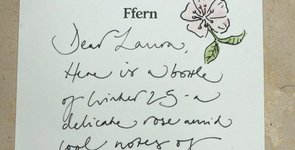 Ffern
Dear Lauren,
Here is a bottle
of Winter 25 - a
delicate rose amid
cool notes of